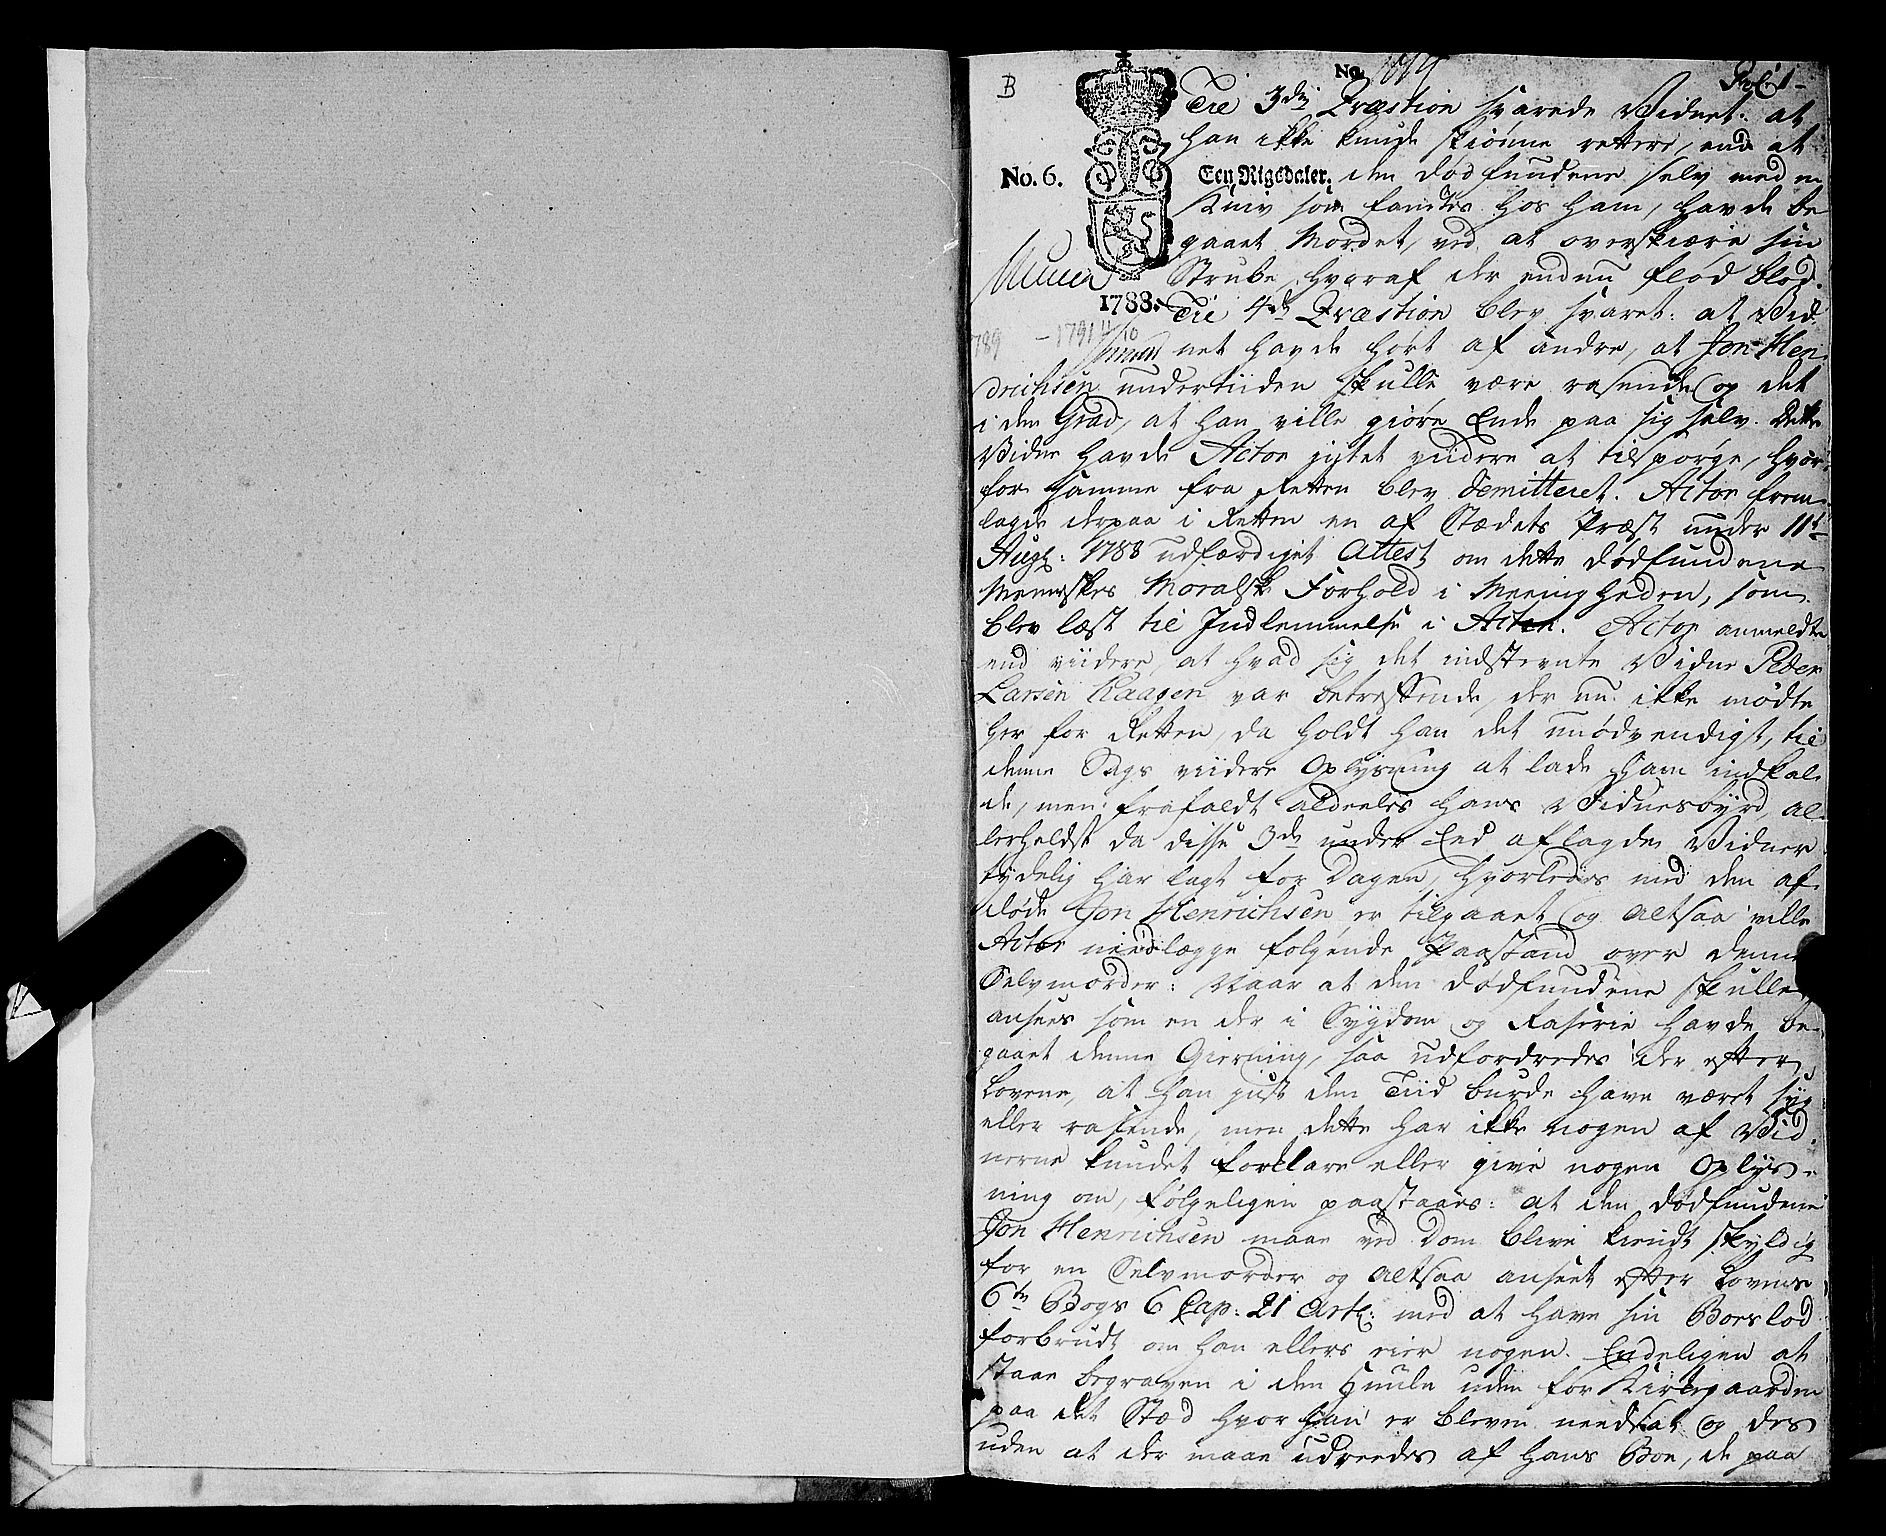 B
No. 1
Til 3die Qvæstion svarede Vidnet: at
han ikke kunde skiønne rettere, end at
No. 6.
Een Rigsdaler.
den dødfundene selv med en
Kniv som fandtes hos ham, havde be
gaaet Mordet, ved at overskiære sin
Strube, hvoraf der endnu flød blod.
1788.
Til 4de Qvæstion blev svaret: at Vid-
789 - 1791
net havde hørt af andre, at Jon Hen
drichsen undertiden skulle være rasende og det
i den Grad, at han ville giøre Ende paa sig selv. Dette
Vidne havde Actor intet viidere at tilspørge, hvor-
for samme fra Retten blev demitteret. Actor frem-
lagde derpaa i Retten en af Stædets Præst under 11te
Augs: 1788 udfærdiget Attest om dette dødfundene
Menneskes Moralske Forhold i Meenigheden, som
blev læst til Indlemmelse i Acten. Actor anmeldte
end viidere, at hvad sig det indstevnte Vidne Peder
Larsen Haagen var betreffende, der nu ikke mødte
her for Retten, da holdt han det unødvendigt, til
denne Sags viidere Oplysning at lade ham indkal-
de, men frafaldt aldeeles hans Vidnesbyrd, al-
lerhelst da disse 3de under Eed aflagde Vidner
tydelig har lagt for Dagen, hvorledes med den af-
døde Jon Henrichsen er tilgaaet og altsaa ville
Actor nedlægge følgende Paastand over denne
Selvmorder: Naar at den dødfundene skulle
ansees som en der i Sygdom og Raserie havde be-
gaaet denne Gierning, saa udfordredes der efter
Lovene, at han just den Tiid burde have været syg
eller rasende, men dette har ikke nogen af Vid-
nerne kundet forklare eller give nogen Oplys-
ning om, følgeligen paastaaes: at den dødfundene
Jon Henrichsen maae ved Dom blive kiendt skyldig
for en Selvmorder og altsaa anseet efter Lovens
6te Bogs 6 Cap: 21 Artl: med at have sin Boeslod
forbrudt om han ellers eier nogen. Endeligen at
staae begraven i den Huule uden for Kirkegaarden
paa det Stæd hvor han er bleven needsat og des
uden at der maae udreedes af hans Boe, de paa